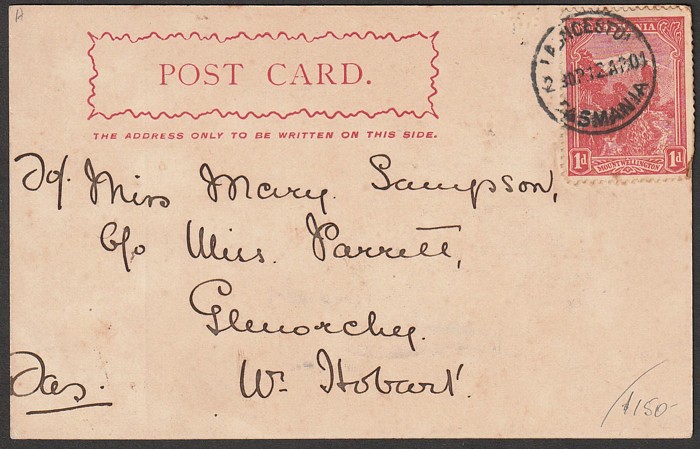 A
POST CARD.
THE ADDRESS ONLY TO BE WRITTEN ON THIS SIDE.
TASMANIA
LAUNCESTON
12 AP 01
TASMANIA
1d 1d
MOUNT WELLINGTON
Miss Mary Sampson,
c/o Miss. Parrett,
Glenorchy.
Tas. W. Hobart.
$150-